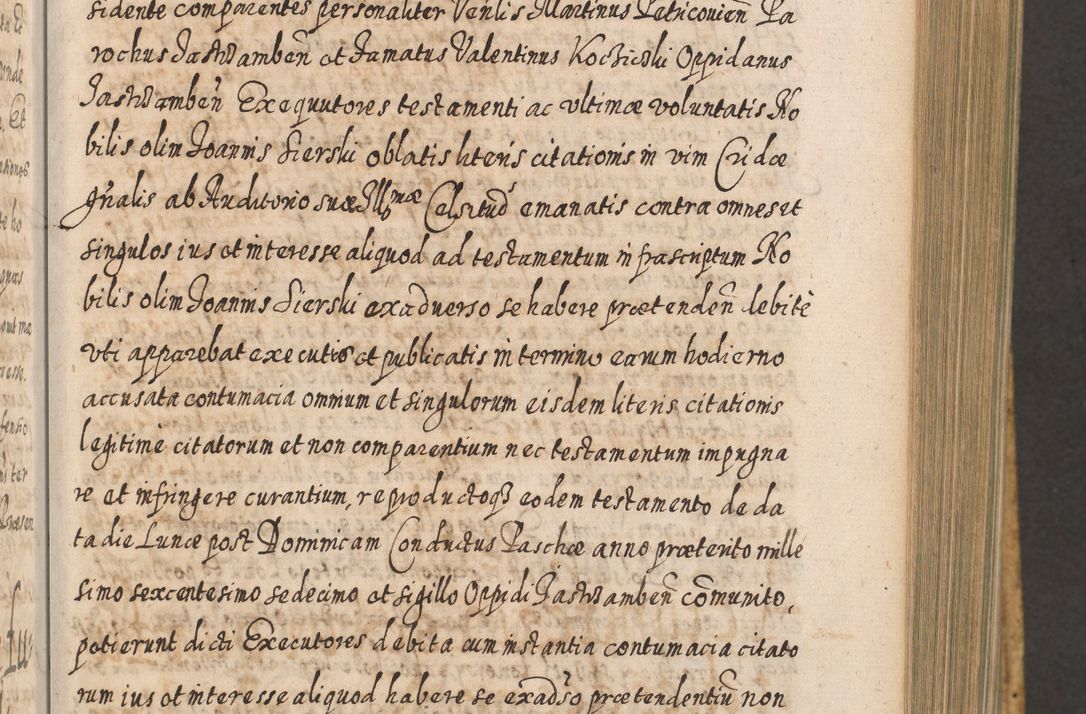 sidente comparentes personaliter Venlis Martinus Patricovien̄ Pa
rochus Jastrzamben̄ et Famatus Valentinus Koczicski Oppidanus
Jastrzamben̄ Exequutores testamenti ac ultimæ voluntatis No
bilis olim Joannis Sierski oblatis literis citationis in vim Cridæ
gn̄alis ab Auditorio suæ Illmæ Celsitud emanatis contra omnes et
singulos ius et interesse aliquod ad testamentum infrascriptum No
bilis olim Joannis Sierski ex adverso se habere prætenden̄ debitè
uti apparebat executis et publicatis in termino earum hodierno
accusata contumacia omnium et singulorum eisdem literis citationis
legitimè citatorum et non comparentium nec testamentum impugna
re et infringere curantium, reproductoq3 eodem testamento de da
ta die Lunæ post Dominicam Conductus Paschæ anno præterito mille
simo sexcentesimo sedecimo et sigillo Oppidi Jastrzamben̄ com̄unito,
petierunt dicti Executores debita cum instantia contumacia citato
rum ius et interesse aliquod habere se exadso prætendentiū non